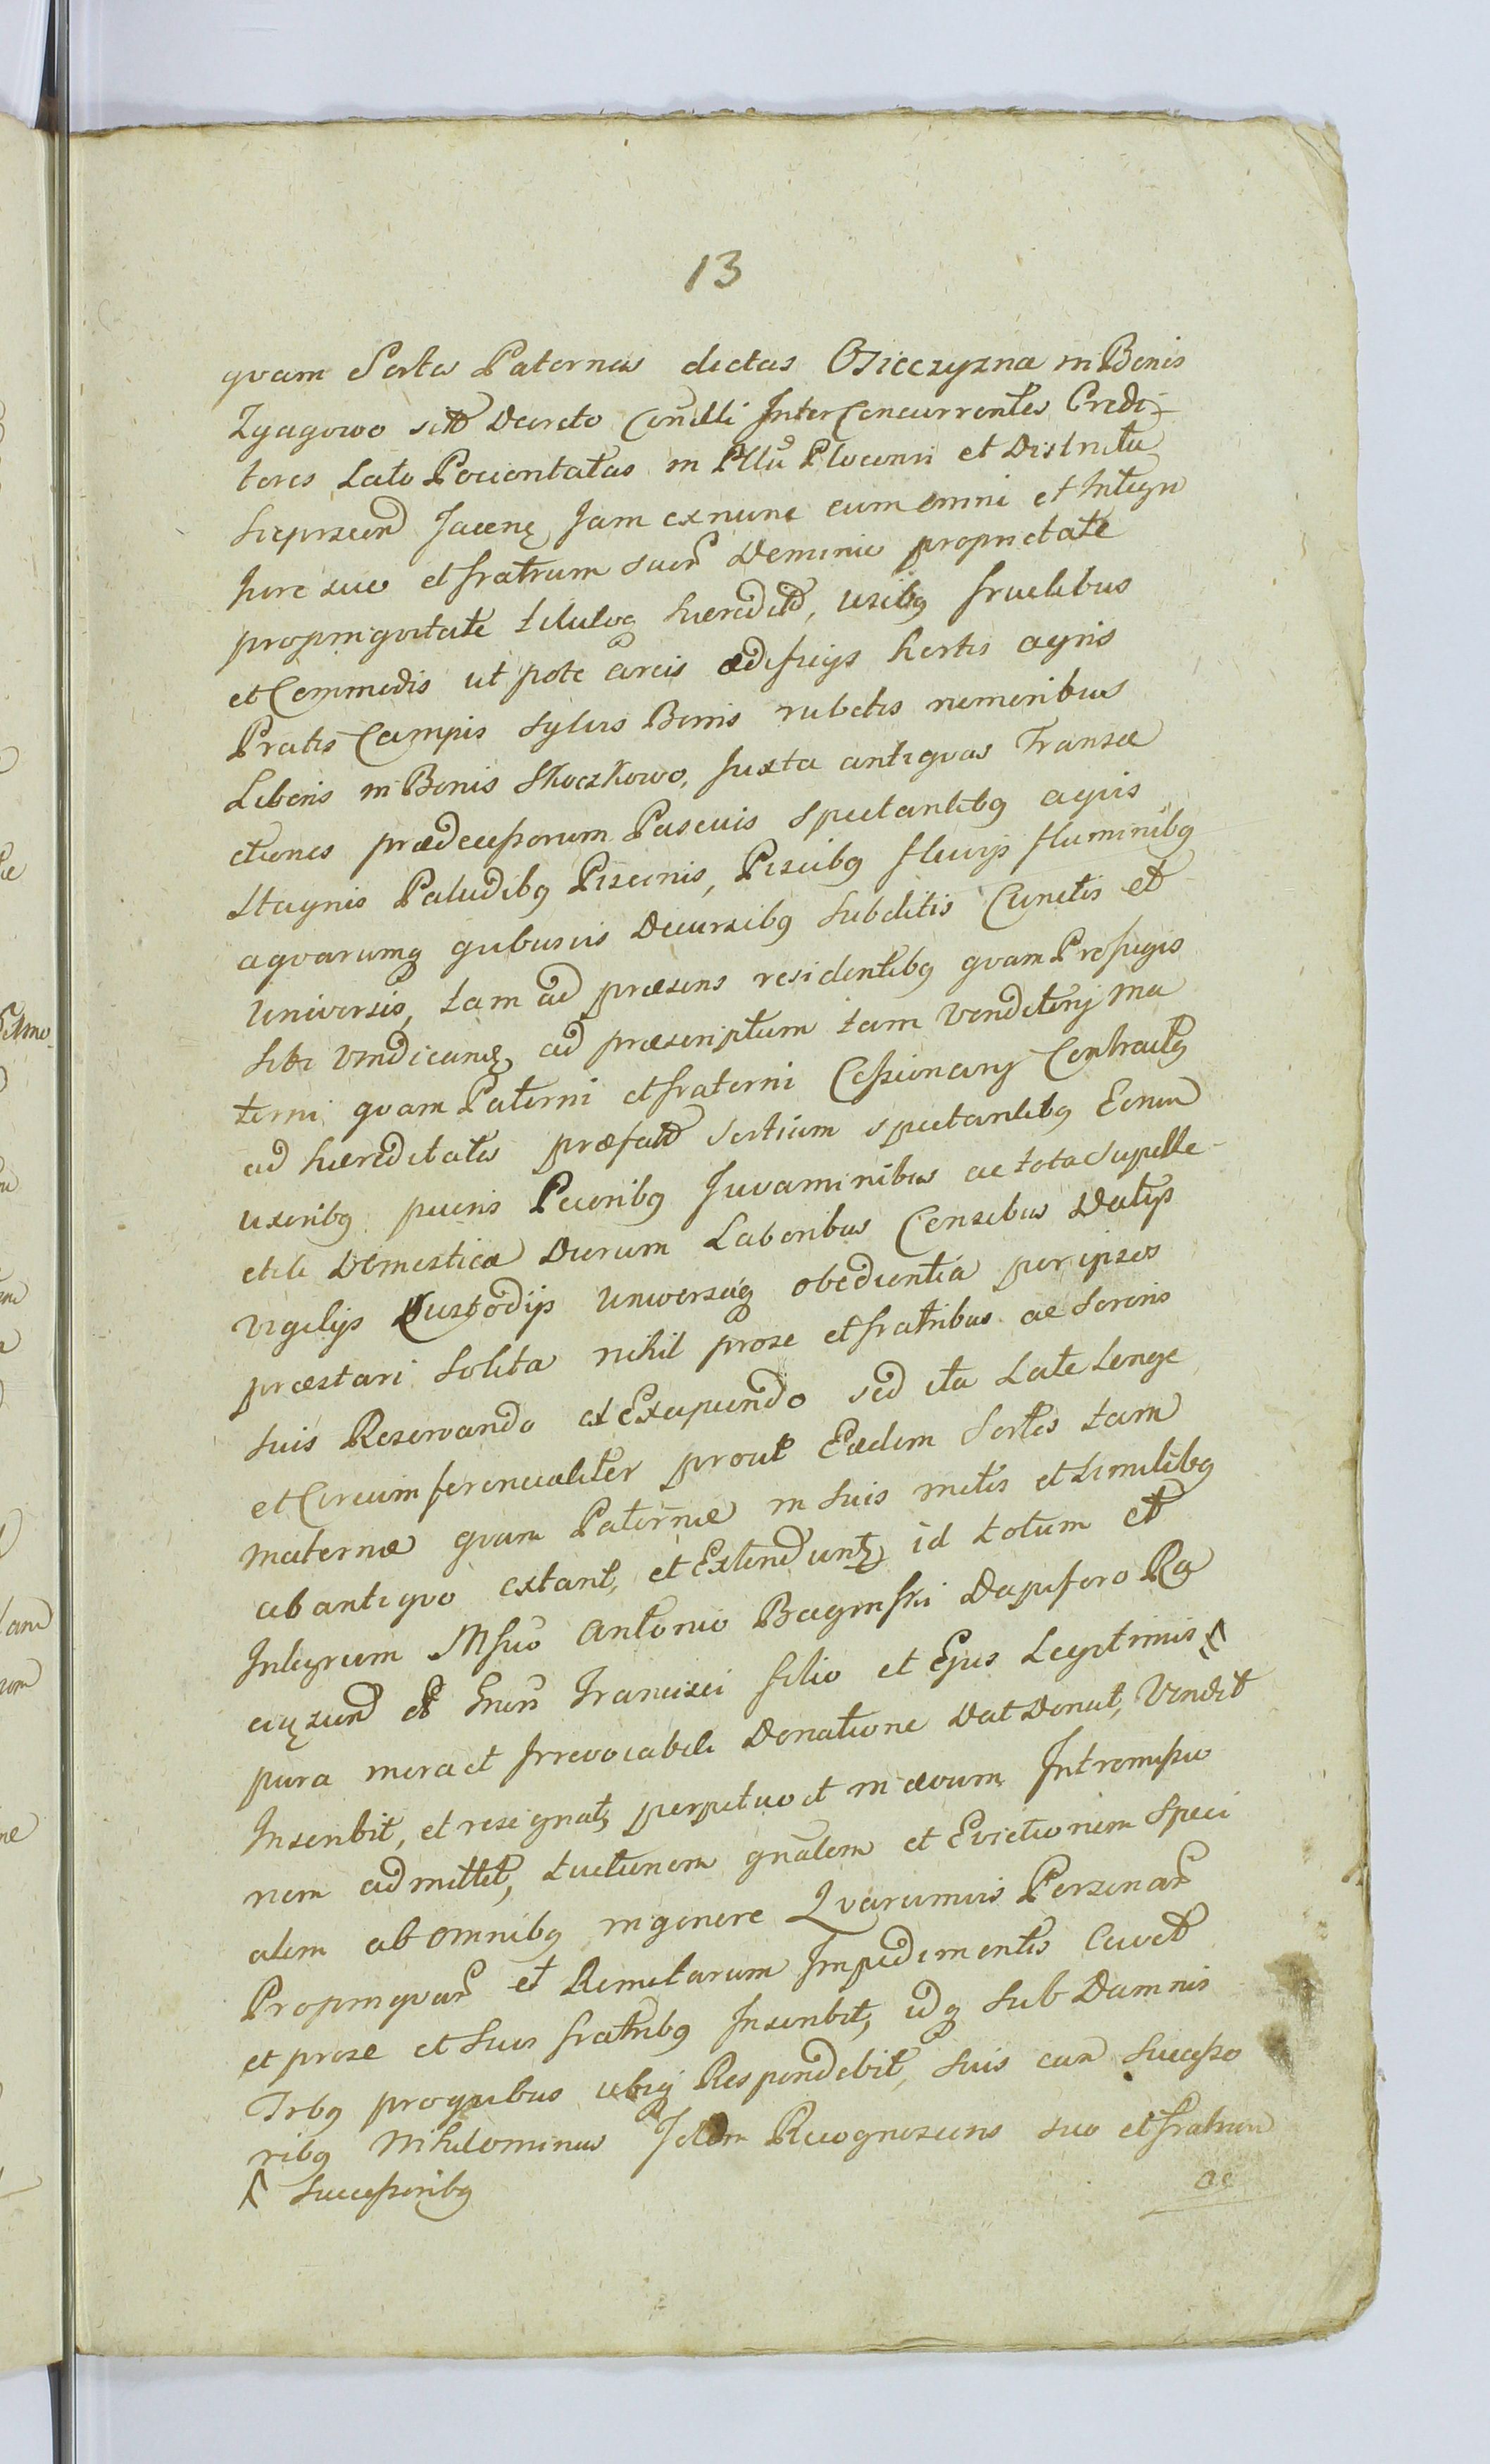 13
quam Sortes Paternas dictas Osieczyzna in Bonis
Zyagowo Decreto Inter Concurrentes Credi-
tores Lato in Pllū Plocenñ et Districtu
Jam exnunc cum omni et Integro
Jure suo et fratrum suorū Dominio proprietate
propinquitate tituloq hæredit, usibq fructibus
et Commodis ut pote areis ædificijs hortis agris
Pratis Campis Sylvis Borris rubetis nemoribus
Liberis in Bonis Skoczkowo, Juxta antiquas Transa
ctiones prædecessorum Pascuis Spectantibq aquis
Stagnis Paludibq Piscinis, Piscibq fluvijs fluminibq
aquarumq quibusvis Decursibq Subditis Cunctis et
Universis, tam ad præsens residentibq quam Profugis
sibi Vindicanđ, ad præscriptum tam Venditorij Ma
terni quam Paterni et fraterni Cessionarij Contractq
ad hæreditates præfat Sortium spectantibq Eorum
uxoribq pueris Pecoribq Juvaminibus ac tota Supelle-
ctili Domestica Dierum Laboribus Censibus Datijs
Vigilijs Custodijs Universaq obedientia per ipsos
præstari Solita nihil prose et fratribus ac Sororis
suis Reservando et Excipiendo sed ita Late Longe
et Circumferencialiter prout Eædem Sortes tam
maternæ quam Paternæ in Suis metis et Limitibq
ab antiquo extant, et Extenduntʒ id totum et
Integrum Mfico Antonio Baginski Dapifero Ra
Francisci filio et Ejus Legitimis ʌ
pura mera et Irrevocabili Donatione Dat Donat, Vendit
Inscribit, et resignat, perpetuo et in ævum Intromissio
nem admittit, tuitionem gnalem et Evictionem Speci
alem ab omnibq in genere Quarumvis Personarū
Propinquarū et Remotarum Impedimentis Cavet
et prose et Suis fratribq Inscribit, idq sub Damnis
Trbq proquibus ubiq Respondebit, Suis cum Successo
ribq Nihilominus Idem Recognoscens suo et fratrum
ʌ Successoribq
ac